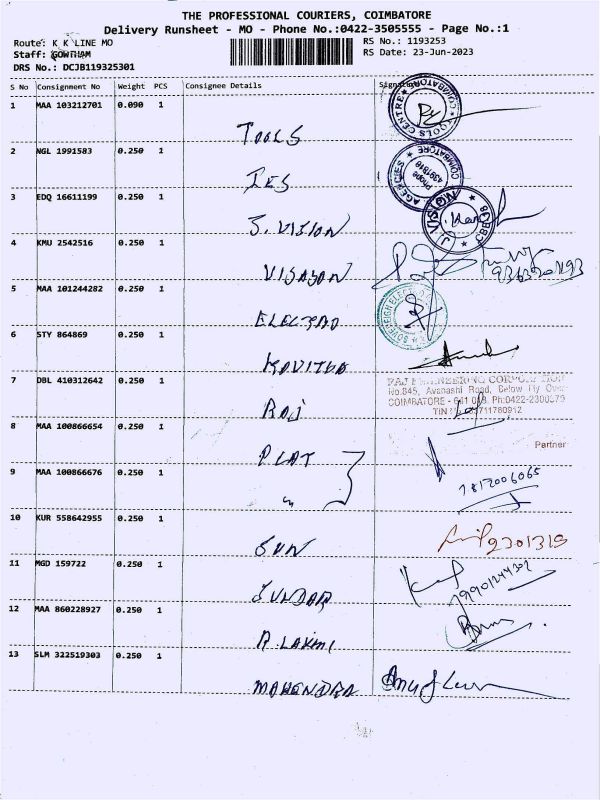 THE PROFESSIONAL COURIERS, COIMBATORE
Delivery Runsheet - MO - Phone No.:0422-3505555 - Page No.:1
Route: K K LINE MO
RS No.: 1193253
Staff: GOWTHAM
RS Date: 23-Jun-2023
DRS No.: DCJB119325301
S No Consignment No Weight PCS Consignee Details Signature
1 MAA 103212701 0.090 1
TOOLS
TOOLS CENTRE COIMBATORE
2 NGL 1991583 0.250 1
IES
AGENCIES COIMBATORE Phone
3 EDQ 16611199 0.250 1
J. VISION
J. VISION CBE-38
4 KMU 2542516 0.250 1
VIJAYON
5 MAA 101244282 0.250 1
ELECTRO
SOVEREIGN ELECTRO
6 STY 864869 0.250 1
KAVITHA
7 DBL 410312642 0.250 1
RAJ
RAJ ENGINEERING CORPORATION
No.845, Avanashi Road, Below Fly Over
COIMBATORE - 641 018. Ph:0422-2300579
TIN
8 MAA 100866654 0.250 1
PLAT
Partner
9 MAA 100866676 0.250 1
"
7812006065
10 KUR 558642955 0.250 1
SUN
11 MGD 159722 0.250 1
SUNDAR
12 MAA 860228927 0.250 1
R. LAXMI
13 SLM 322519303 0.250 1
MAHENDRA